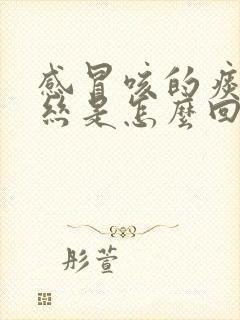 感冒咳的痰
絲是怎麼回
彤萱